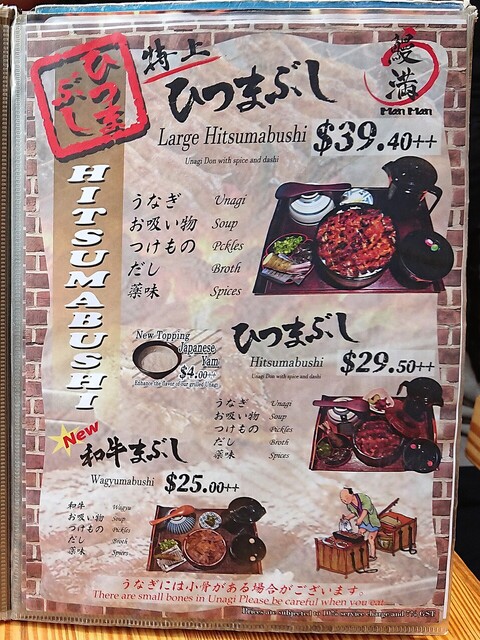 ひつまぶし
特上
ひつまぶし
鰻満
Man Man
Large Hitsumabushi $39.40++
Unagi Don with spice and dashi
HITSUMABUSHI
うなぎ Unagi
お吸い物 Soup
つけもの Pckles
だし Broth
薬味 Spices
New Topping
Japanese
Yam
$4.00++
Enhance the flavor of our grilled Unagi
ひつまぶし
Hitsumabushi $29.50++
Unagi Don with spice and dashi
うなぎ Unagi
お吸い物 Soup
つけもの Pickles
だし Broth
薬味 Spices
New
和牛まぶし
Wagyumabushi $25.00++
和牛 Wagyu
お吸い物 Soup
つけもの Pickles
だし Broth
薬味 Spices
うなぎには小骨がある場合がございます。
There are small bones in Unagi Please be careful when you eat
Prices are subjected to 10% service charge and 7% GST